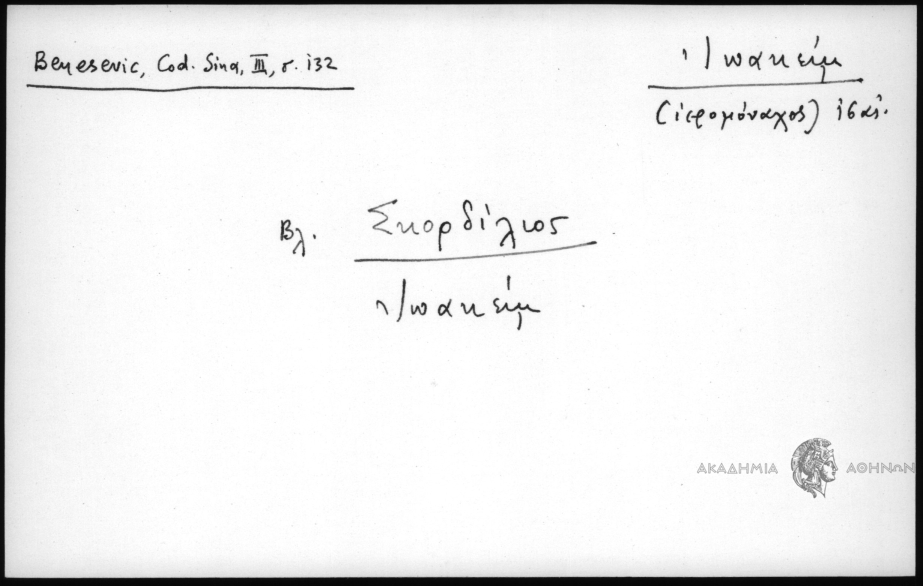 Benesevic, Cod. Sina, III, σ. 132
Ἰωακείμ
(ἱερομόναχος) ις΄ αἰ.
Βλ. Σκορδίλιος
Ἰωακείμ
ΑΚΑΔΗΜΙΑ ΑΘΗΝΩΝ